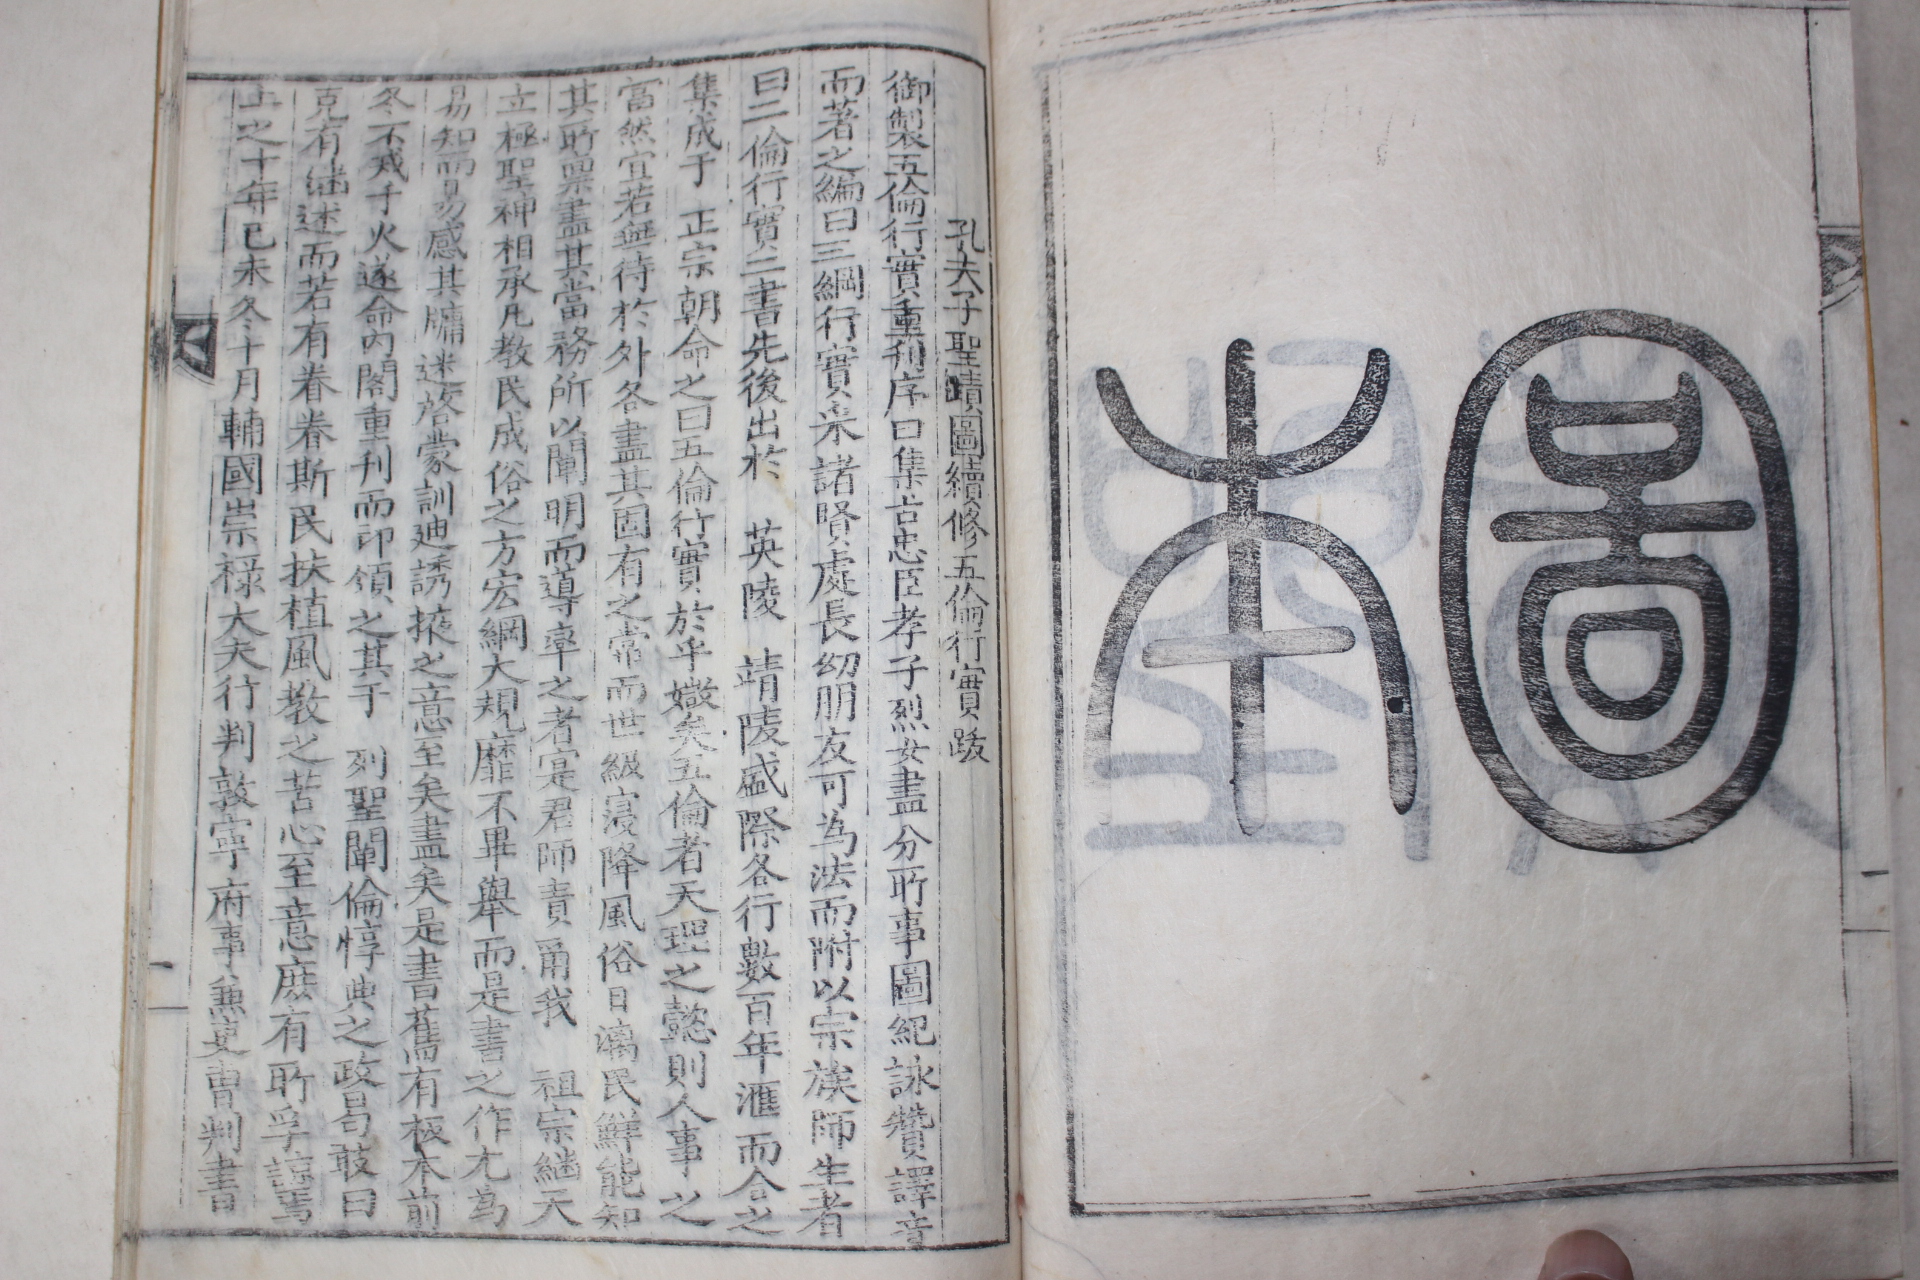 圖本
孔夫子聖蹟圖續修五倫行實跋
御製五倫行實重刊序曰集古忠臣孝子烈女盡分所事圖紀詠贊譯音
而著之編曰三綱行實采諸賢處長幼朋友可為法而附以宗族師生者
曰二倫行實二書先後出於 英陵 靖陵盛際各行數百年滙而合之
集成于 正宗朝命之曰五倫行實於乎媺矣五倫者天理之懿則人事之
當然宜若無待於外各盡其固有之常而世級寖降風俗日漓民鮮能知
其所稟盡其當務所以闡明而導率之者寔君師責爾我 祖宗繼天
立極聖神相承凡教民成俗之方宏綱大規靡不畢舉而是書之作尤為
易知而易感其牖迷啓蒙訓迪誘掖之意至矣盡矣是書舊有板本前
冬不戒于火遂命內閣重刊而印領之其于 列聖闡倫惇典之政曷敢曰
克有繼述而若有眷眷斯民扶植風教之苦心至意庶有所孚諒焉
上之十年己未冬十月輔國崇祿大夫行判敦寧府事兼吏曹判書